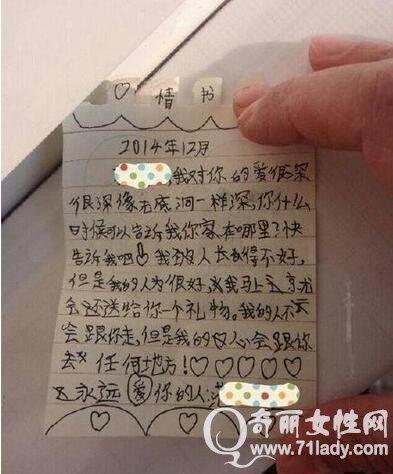 ♡ 情书
2014年12月
,我对你的爱很深
很深像无底洞一样深,你什么
时候可以告诉我你家在哪里?快
告诉我吧!我的人长得不好,
但是我的人为很好,我马上
会送给你一个礼物。我的人不
会跟你走,但是我的心会跟你
去任何地方!♡♡♡♡♡
永远爱你的人:
奇丽女性网
www.71lady.com